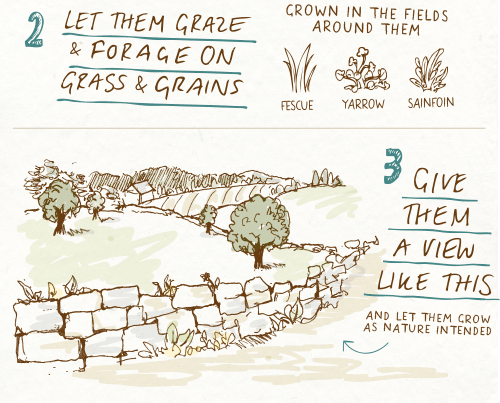 2
LET THEM GRAZE
& FORAGE ON
GRASS & GRAINS
GROWN IN THE FIELDS
AROUND THEM
FESCUE
YARROW
SAINFOIN
3
GIVE
THEM
A VIEW
LIKE THIS
AND LET THEM GROW
AS NATURE INTENDED